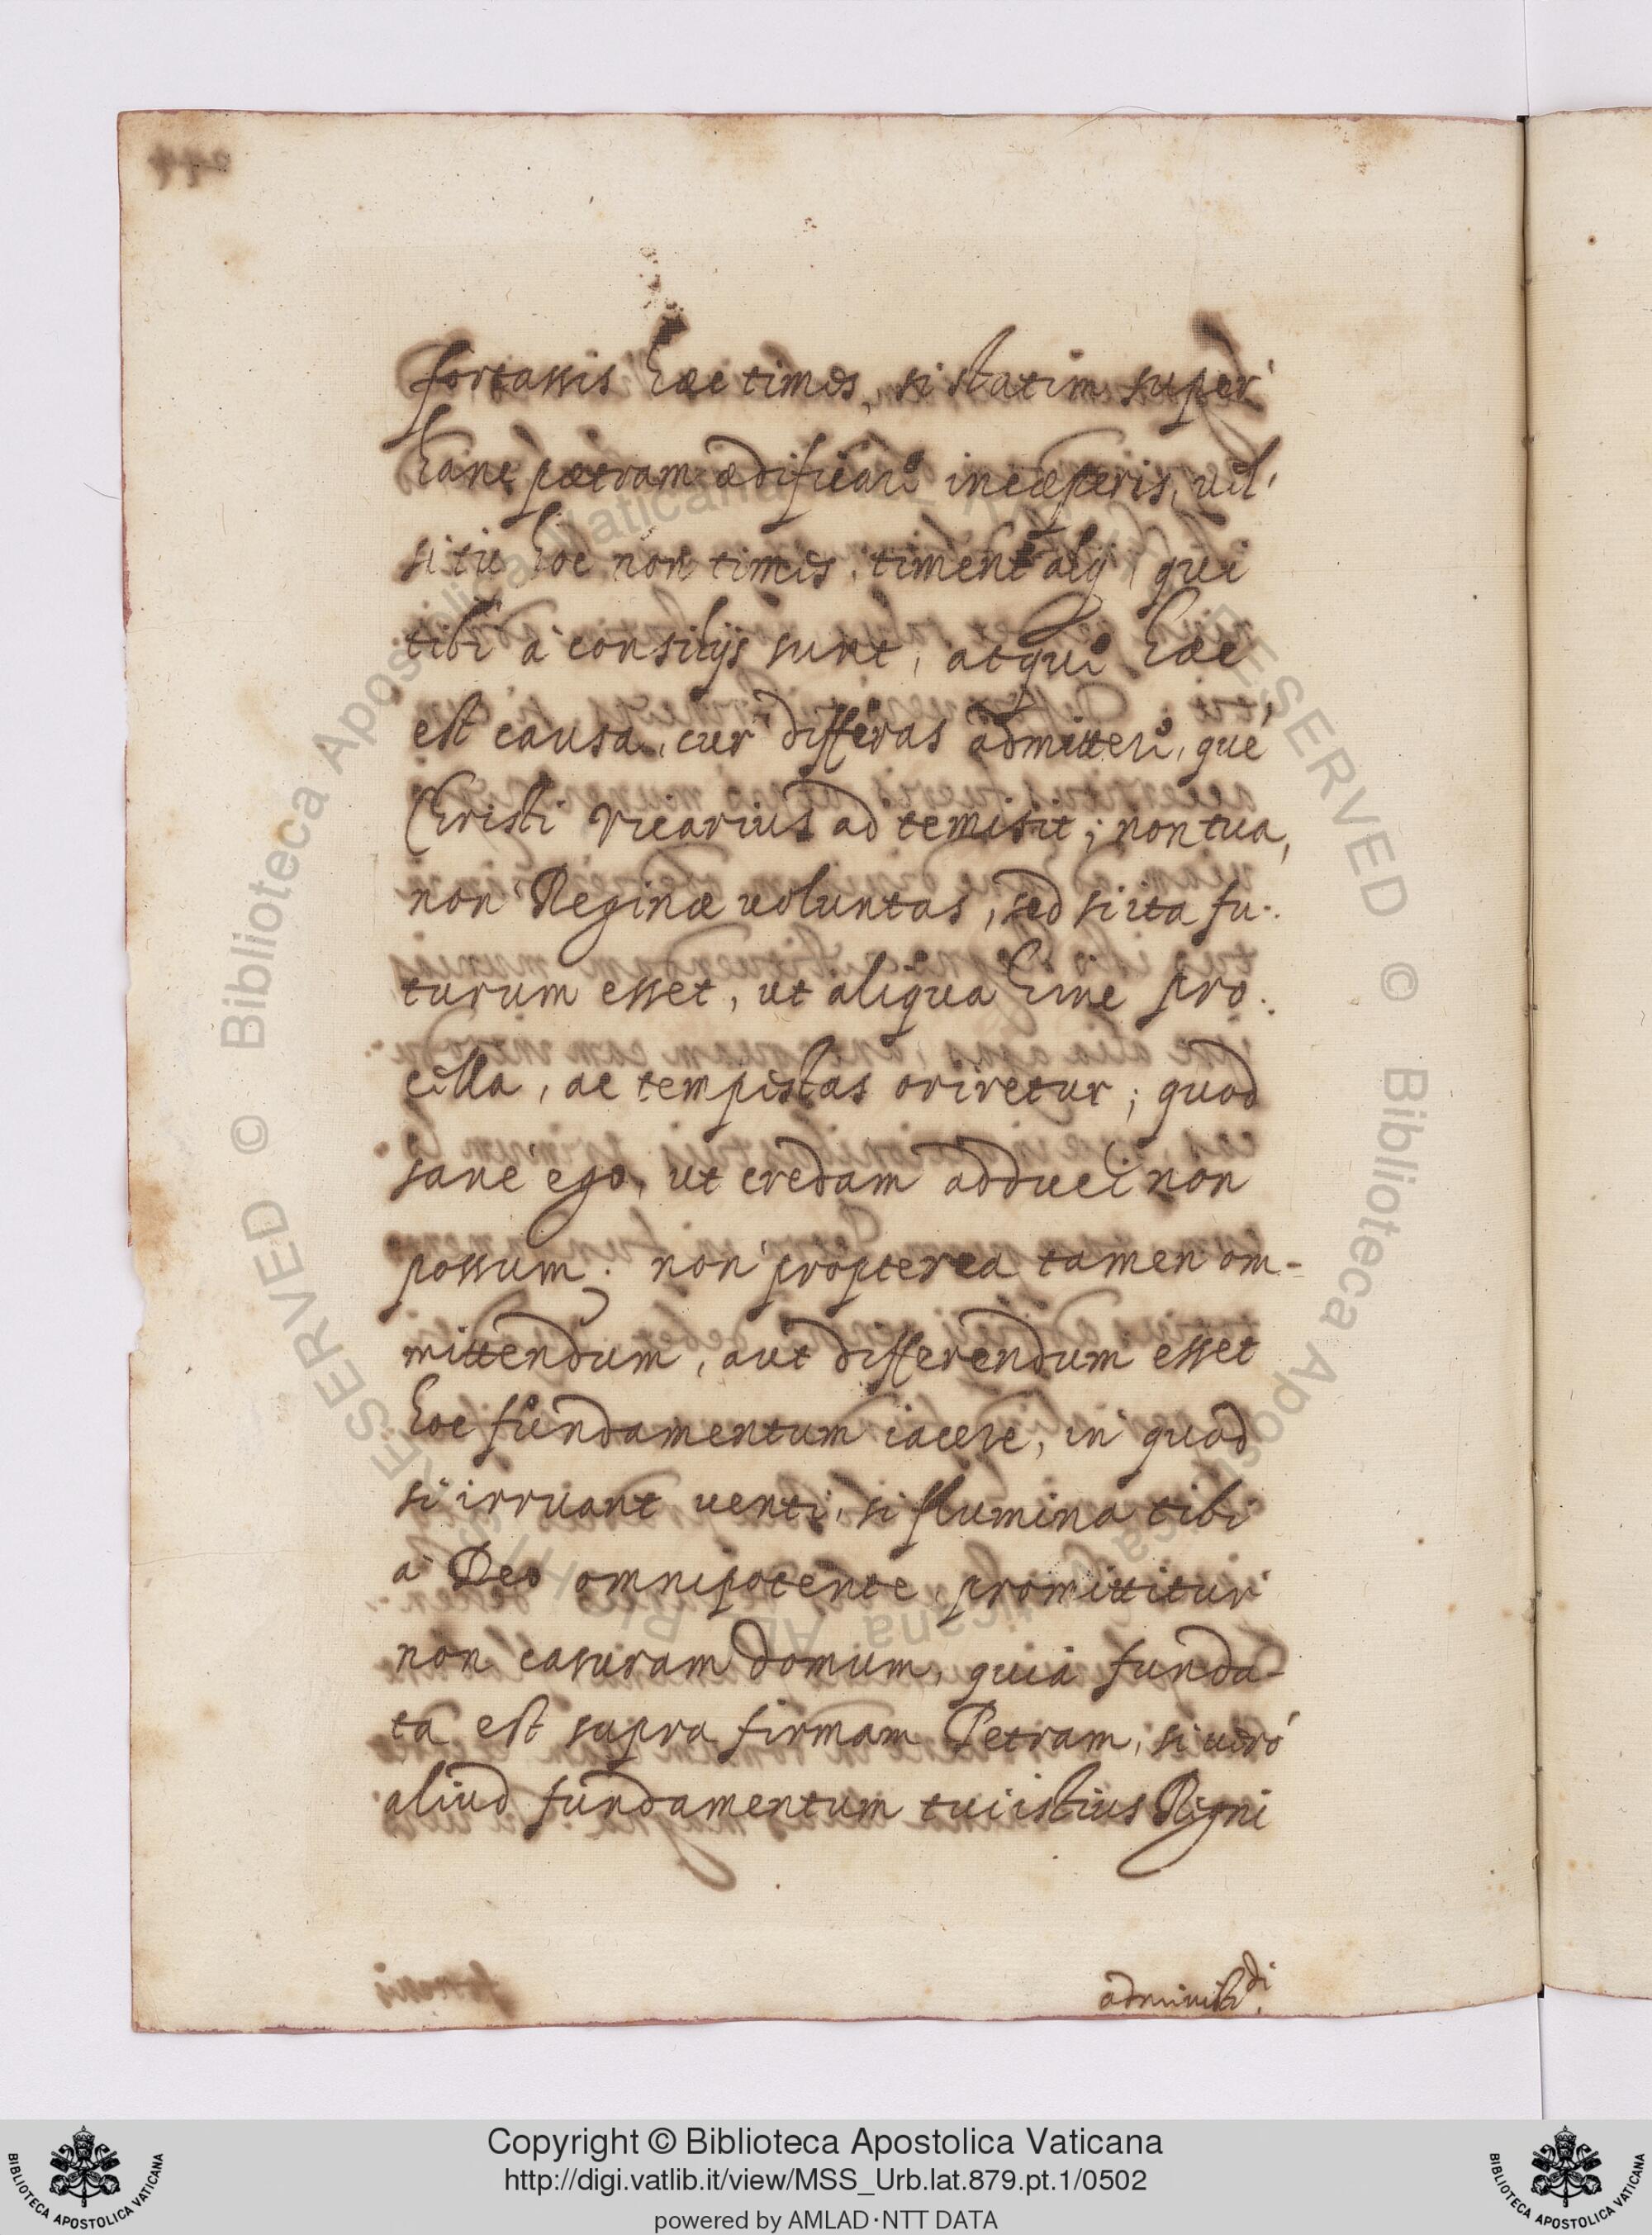 fortassis hæc times, si statim super
hanc pætram ædificare incæperis, vel
si tu hoc non times, timent alij qui
tibi à consilijs sunt, atque hæc
est causa, cur differas admittere, que
Christi Vicarius ad te misit; non tua,
non Reginæ voluntas, sed si ita fu-
turum esset, ut aliqua hinc pro-
cella, ac tempestas oriretur; quod
sane ego, ut credam adduci non
possum. non propterea tamen om-
mittendum, aut differendum esset
hoc fundamentum iacere, in quod
si irruant venti, si flumina tibi
à Deo omnipotente promittitur
non casuram domum, quia funda-
ta est supra firmam Petram, si verò
aliud fundamentum tui istius Regni
© Biblioteca Apostolica Vaticana ALL RIGHTS RESERVED
Copyright © Biblioteca Apostolica Vaticana
http://digi.vatlib.it/view/MSS_Urb.lat.879.pt.1/0502
powered by AMLAD·NTT DATA
BIBLIOTECA APOSTOLICA VATICANA
BIBLIOTECA APOSTOLICA VATICANA